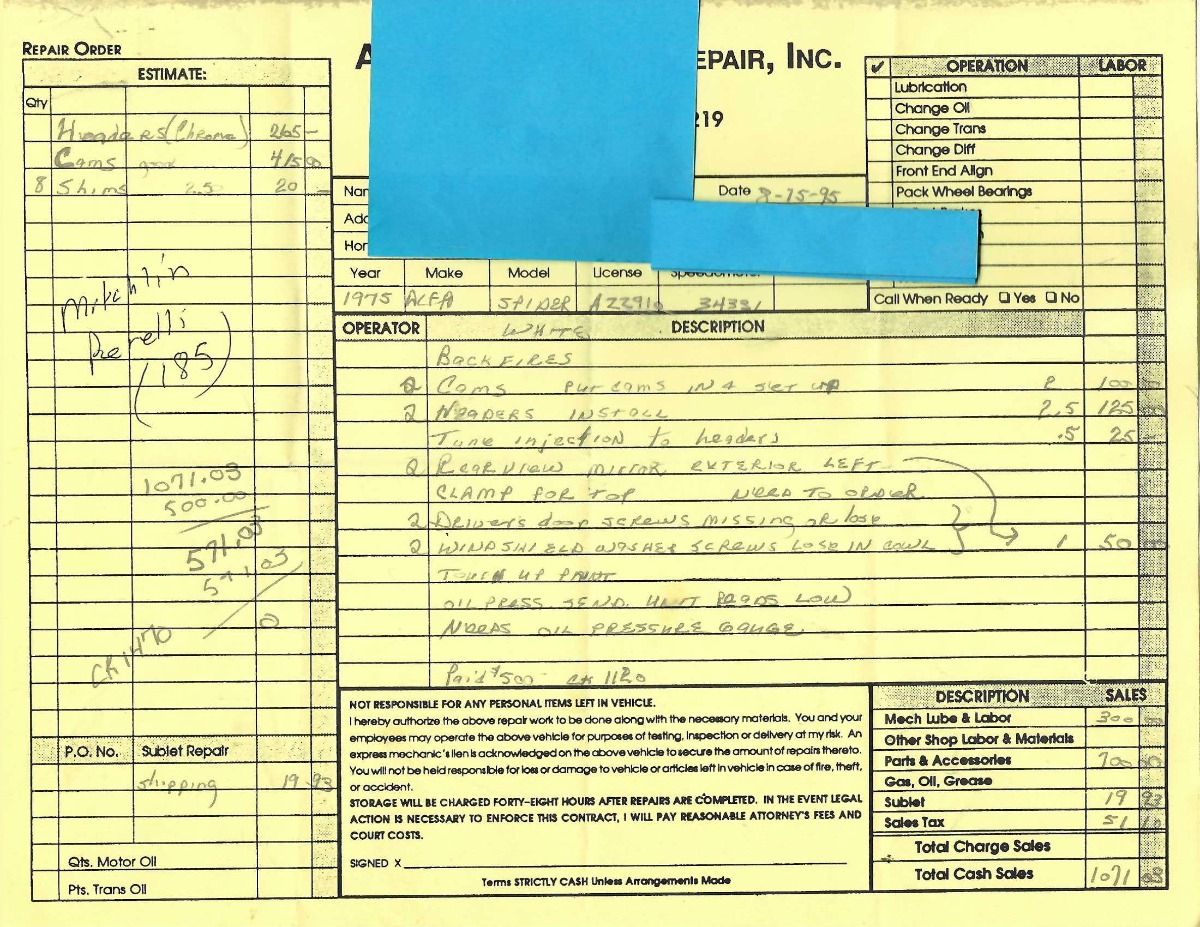 REPAIR ORDER
EPAIR, INC.
219
ESTIMATE:
Qty
Headers (Chrome) 265 –
Cams 415 00
8 Shims 2.50 20 –
Mitchlin
Perellis
(185)
1071.03
500.00
571.03
571.03
0
CK 1470
P.O. No. Sublet Repair
shipping 19 93
Qts. Motor Oil
Pts. Trans Oil
Date 8-15-95
Year Make Model License
1975 ALFA SPIDER AZZ910 34331
✓ OPERATION LABOR
Lubrication
Change Oil
Change Trans
Change Diff
Front End Align
Pack Wheel Bearings
Call When Ready ❑ Yes ❑ No
OPERATOR DESCRIPTION
WHITE
BACKFIRES
2 Cams PUT CAMS IN & SET UP 2 100
2 HEADERS INSTALL 2.5 125
Tune injection to headers .5 25 –
2 REARVIEW MIRROR EXTERIOR LEFT
CLAMP FOR TOP NEED TO ORDER
2 Drivers door SCREWS MISSING OR lose
2 WINDSHIELD WASHER SCREWS LOSE IN COWL 1 50
TOUCH UP PAINT
OIL PRESS. SEND. UNIT READS LOW
NEEDS OIL PRESSURE GAUGE
Paid $500– CK 1120
NOT RESPONSIBLE FOR ANY PERSONAL ITEMS LEFT IN VEHICLE.
I hereby authorize the above repair work to be done along with the necessary materials. You and your
employees may operate the above vehicle for purposes of testing, inspection or delivery at my risk. An
express mechanic's lien is acknowledged on the above vehicle to secure the amount of repairs thereto.
You will not be held responsible for loss or damage to vehicle or articles left in vehicle in case of fire, theft,
or accident.
STORAGE WILL BE CHARGED FORTY-EIGHT HOURS AFTER REPAIRS ARE COMPLETED. IN THE EVENT LEGAL
ACTION IS NECESSARY TO ENFORCE THIS CONTRACT, I WILL PAY REASONABLE ATTORNEY'S FEES AND
COURT COSTS.
SIGNED X
Terms STRICTLY CASH Unless Arrangements Made
DESCRIPTION SALES
Mech Lube & Labor 300 00
Other Shop Labor & Materials
Parts & Accessories 700 00
Gas, Oil, Grease
Sublet 19 93
Sales Tax 51 10
Total Charge Sales
Total Cash Sales 1071 03